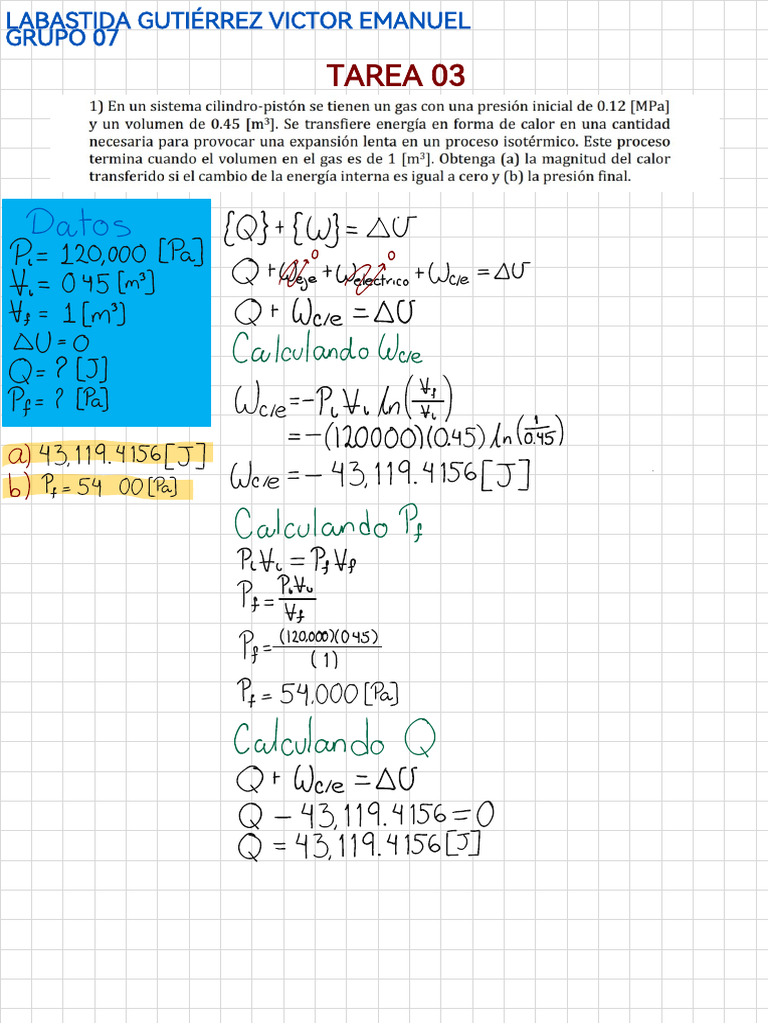 LABASTIDA GUTIÉRREZ VICTOR EMANUEL
GRUPO 07
TAREA 03
1) En un sistema cilindro-pistón se tienen un gas con una presión inicial de 0.12 [MPa]
y un volumen de 0.45 [m³]. Se transfiere energía en forma de calor en una cantidad
necesaria para provocar una expansión lenta en un proceso isotérmico. Este proceso
termina cuando el volumen en el gas es de 1 [m³]. Obtenga (a) la magnitud del calor
transferido si el cambio de la energía interna es igual a cero y (b) la presión final.
Datos
Pi = 120,000 [Pa]
Vi = 0 45 [m³]
Vf = 1 [m³]
ΔU = 0
Q = ? [J]
Pf = ? [Pa]
a) 43,119.4156 [J]
b) Pf = 54 00 [Pa]
{Q} + {W} = ΔU
Q + Weje 0 + Welectrico 0 + Wc/e = ΔU
Q + Wc/e = ΔU
Calculando Wc/e
Wc/e = - Pi Vi ln (Vf/Vi)
= - (120000)(0.45) ln (1/0.45)
Wc/e = - 43,119.4156 [J]
Calculando Pf
Pi Vi = Pf Vf
Pf = Pi Vi / Vf
Pf = (120,000)(0 45) / (1)
Pf = 54,000 [Pa]
Calculando Q
Q + Wc/e = ΔU
Q - 43,119.4156 = 0
Q = 43,119.4156 [J]